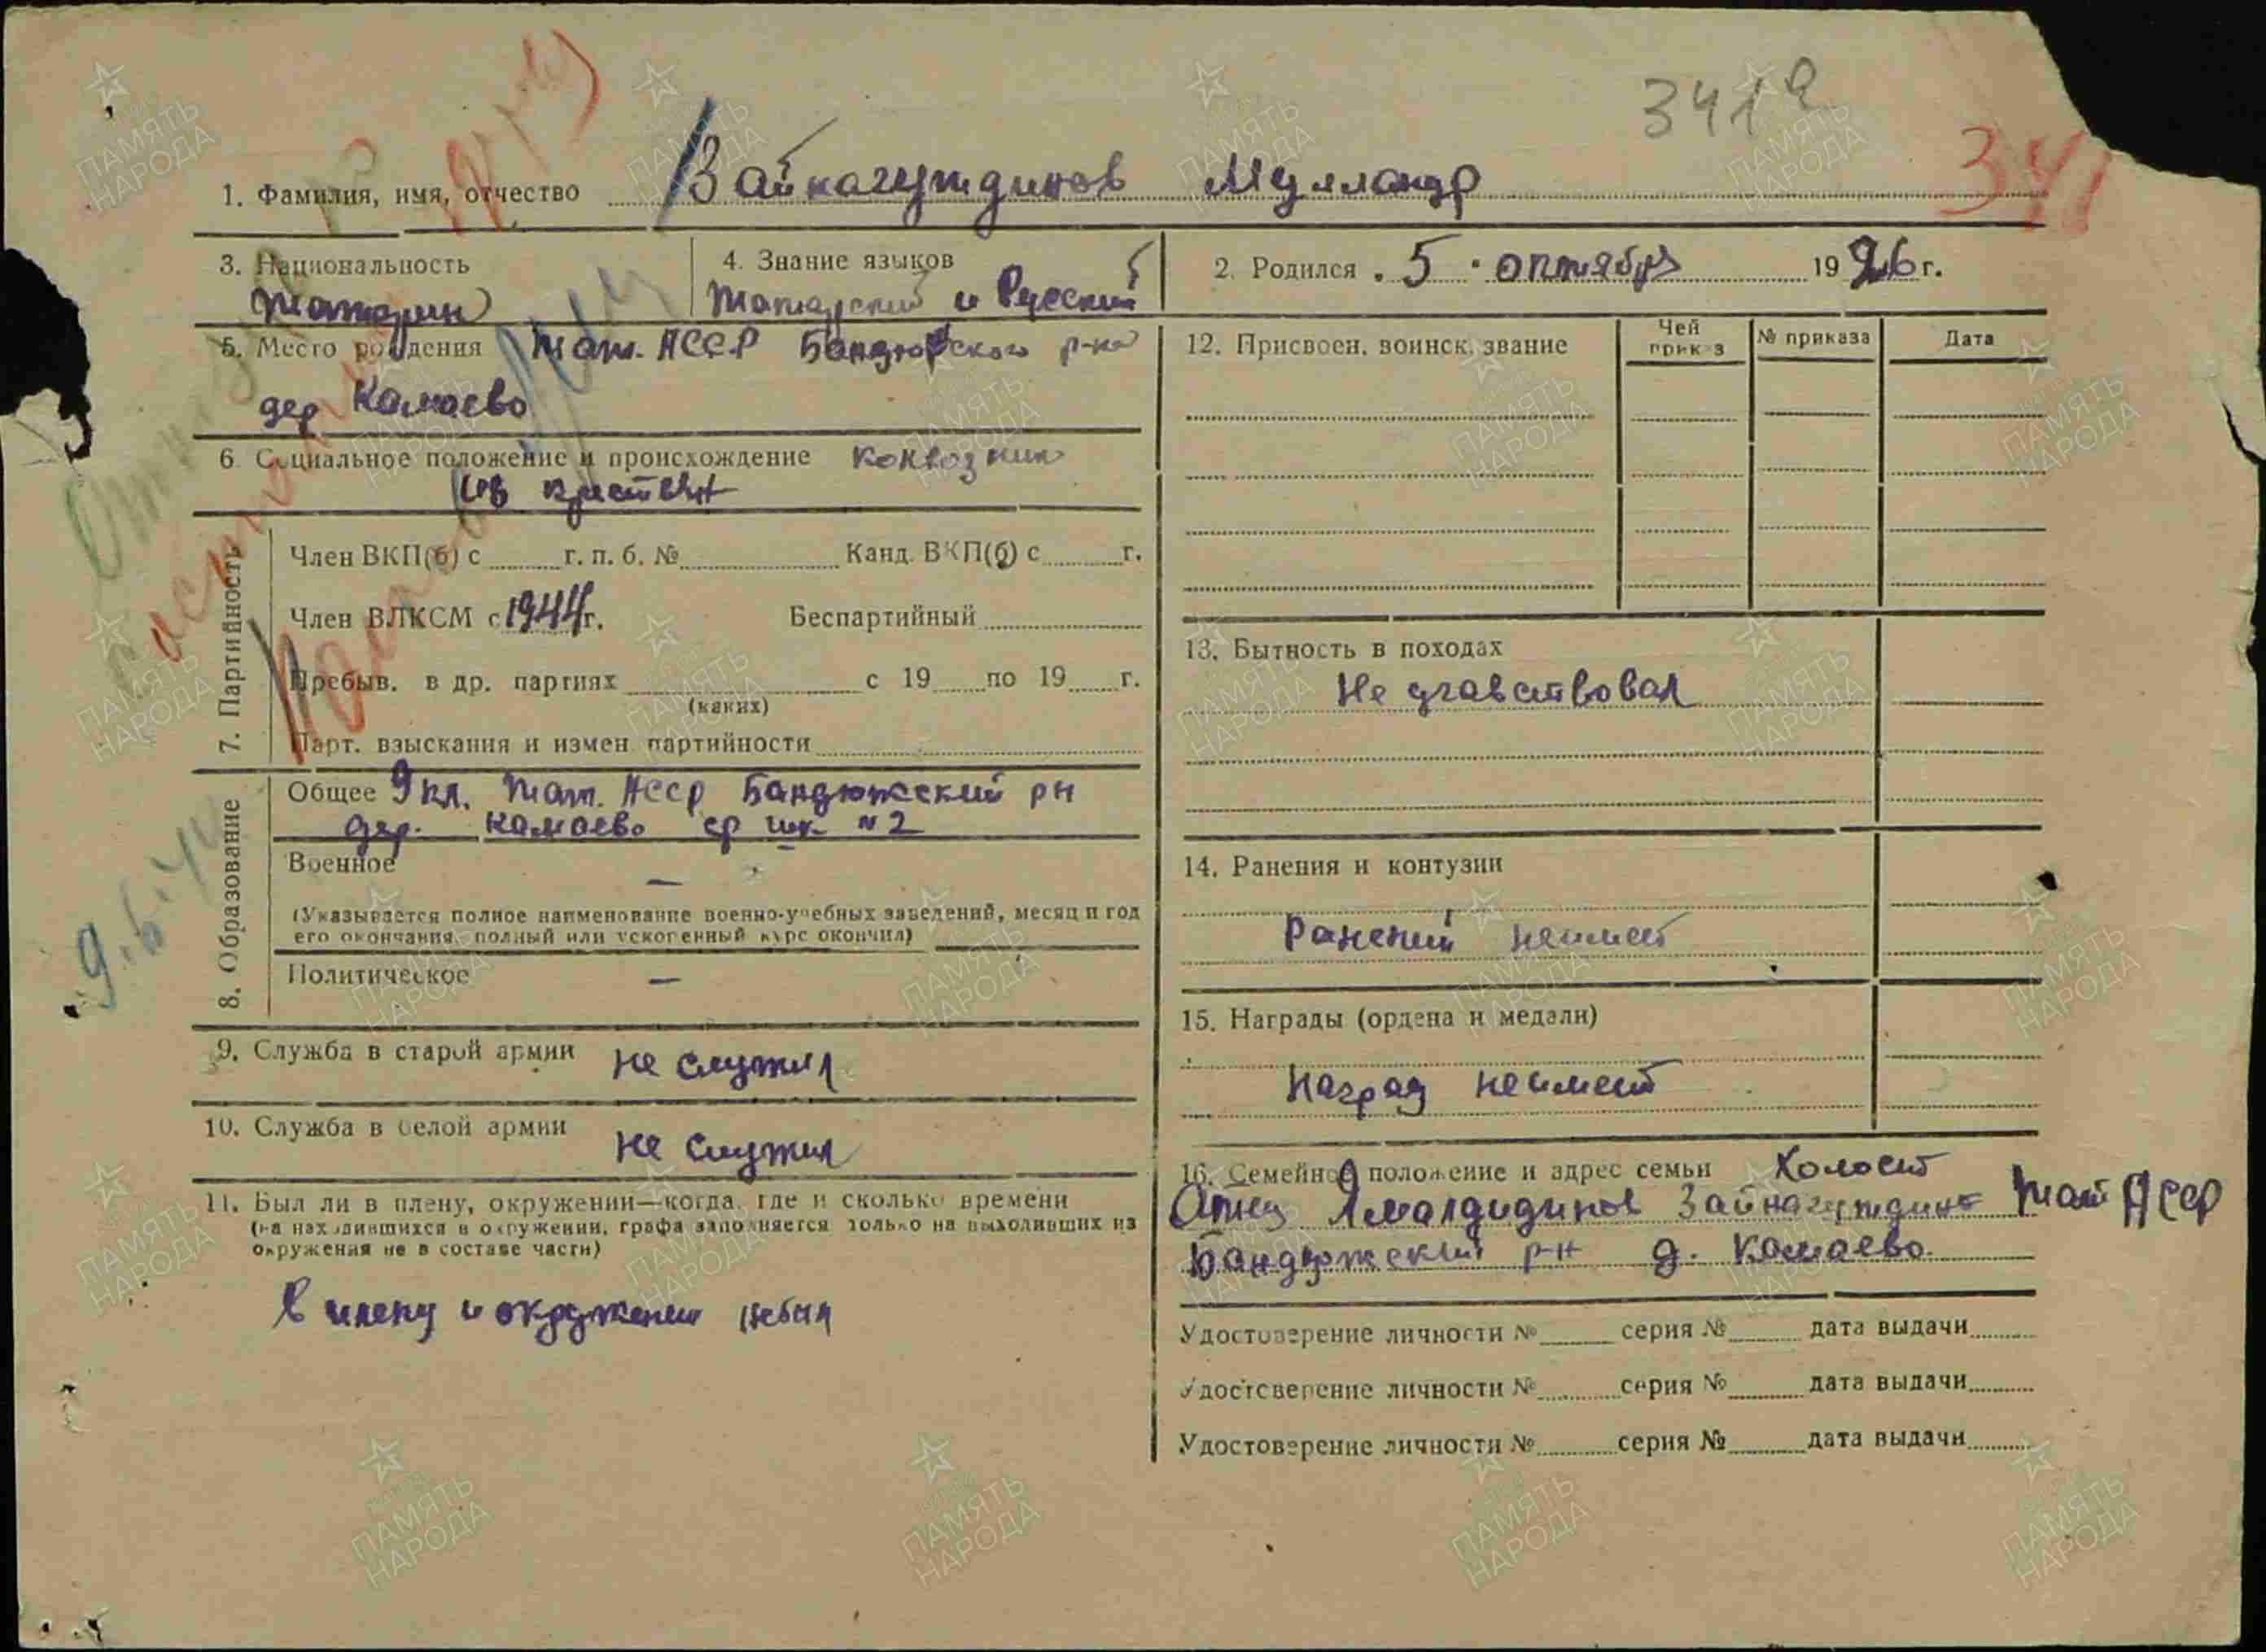 341
1. Фамилия, имя, отчество Зайнагутдинов Мулланур
3. Национальность
татарин
4. Знание языков
татарский и Русский
2. Родился 5 октября 1926 г.
5. Место рождения тат. АССР Бандюжского р-на
дер Камаево
6. Социальное положение и происхождение колхозник
из крестьян
7. Партийность
Член ВКП(б) с г. п. б. № Канд. ВКП(б) с г.
Член ВЛКСМ с 1944 г. Беспартийный
Пребыв. в др. партиях с 19 по 19 г.
(каких)
Парт. взыскания и измен. партийности
8. Образование
Общее 9 кл. тат. АССР Бандюжский рн
дер. Камаево ср шк №2
Военное —
(Указывается полное наименование военно-учебных заведений, месяц и год
его окончания, полный или ускоренный курс окончил)
Политическое —
9. Служба в старой армии не служил
10. Служба в белой армии не служил
11. Был ли в плену, окружении—когда, где и сколько времени
(на находившихся в окружении, графа заполняется только на выходивших из
окружения не в составе части)
В плену и окружении небыл
12. Присвоен. воинск. звание
Чей приказ
№ приказа
Дата
13. Бытность в походах
Не участвовал
14. Ранения и контузии
Ранений неимеет
15. Награды (ордена и медали)
Наград неимеет
16. Семейное положение и адрес семьи Холост
Отец Зайнагутдин тат АССР
Бандюжский р-н д. Камаево
Удостоверение личности № серия № дата выдачи
Удостоверение личности № серия № дата выдачи
Удостоверение личности № серия № дата выдачи
9.6.44
ПАМЯТЬ НАРОДА